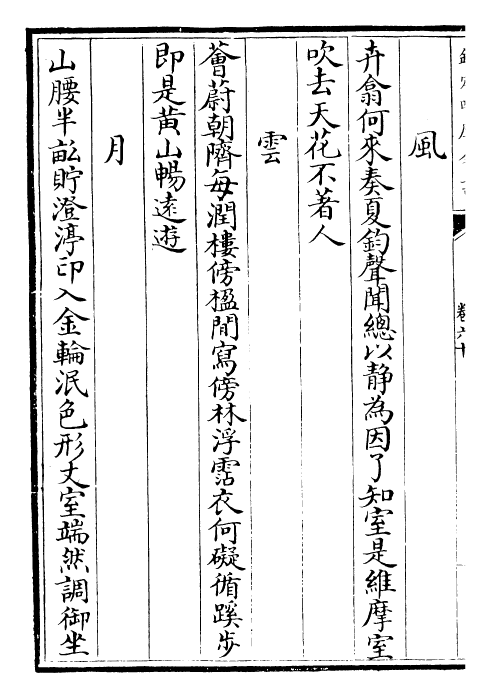 卷六十
風
卉翕何來奏夏鈞聲聞總以静為因了知室是維摩室
吹去天花不著人
雲
薈蔚朝隮每潤樓傍楹閒寫傍林浮霑衣何礙循蹊步
即是黄山暢逺遊
月
山腰半畝貯澄渟印入金輪泯色形丈室端然調御坐